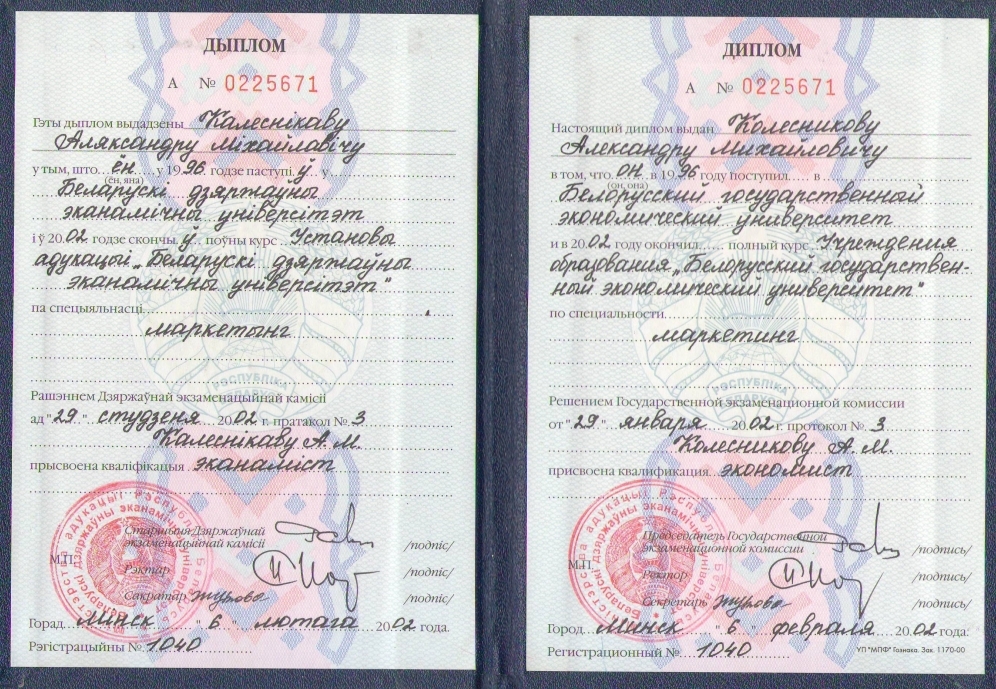 ДЫПЛОМ
А № 0225671
Гэты дыплом выдадзены Калеснікаву
Аляксандру Міхайлавічу
у тым, што ён у 1996 годзе паступіў у
(ён, яна)
Беларускі дзяржаўны
эканамічны універсітэт
і ў 2002 годзе скончыў поўны курс Установы
адукацыі „Беларускі дзяржаўны
эканамічны універсітэт"
па спецыяльнасці
маркетынг
РЭСПУБЛІКА
Рашэннем Дзяржаўнай экзаменацыйнай камісіі
ад "29" студзеня 2002 г. пратакол № 3
Калеснікаву А. М.
прысвоена кваліфікацыя эканаміст
Старшыня Дзяржаўнай
экзаменацыйнай камісіі /подпіс/
М.П.
Рэктар /подпіс/
Сакратар Журова /подпіс/
Горад Мінск "6" лютага 2002 года.
Рэгістрацыйны № 1040
ДИПЛОМ
А № 0225671
Настоящий диплом выдан Колесникову
Александру Михайловичу
в том, что он в 1996 году поступил в
(он, она)
Белорусский государственный
экономический университет
и в 2002 году окончил полный курс Учреждения
образования „Белорусский государствен-
ный экономический университет"
по специальности
маркетинг
РЭСПУБЛІКА
Решением Государственной экзаменационной комиссии
от "29" января 2002 г. протокол № 3
Колесникову А. М.
присвоена квалификация экономист
Председатель Государственной
экзаменационной комиссии /подпись/
М.П.
Ректор /подпись/
Секретарь Журова /подпись/
Город Минск "6" февраля 2002 года.
Регистрационный № 1040
УП "МПФ" Гознака. Зак. 1170-00